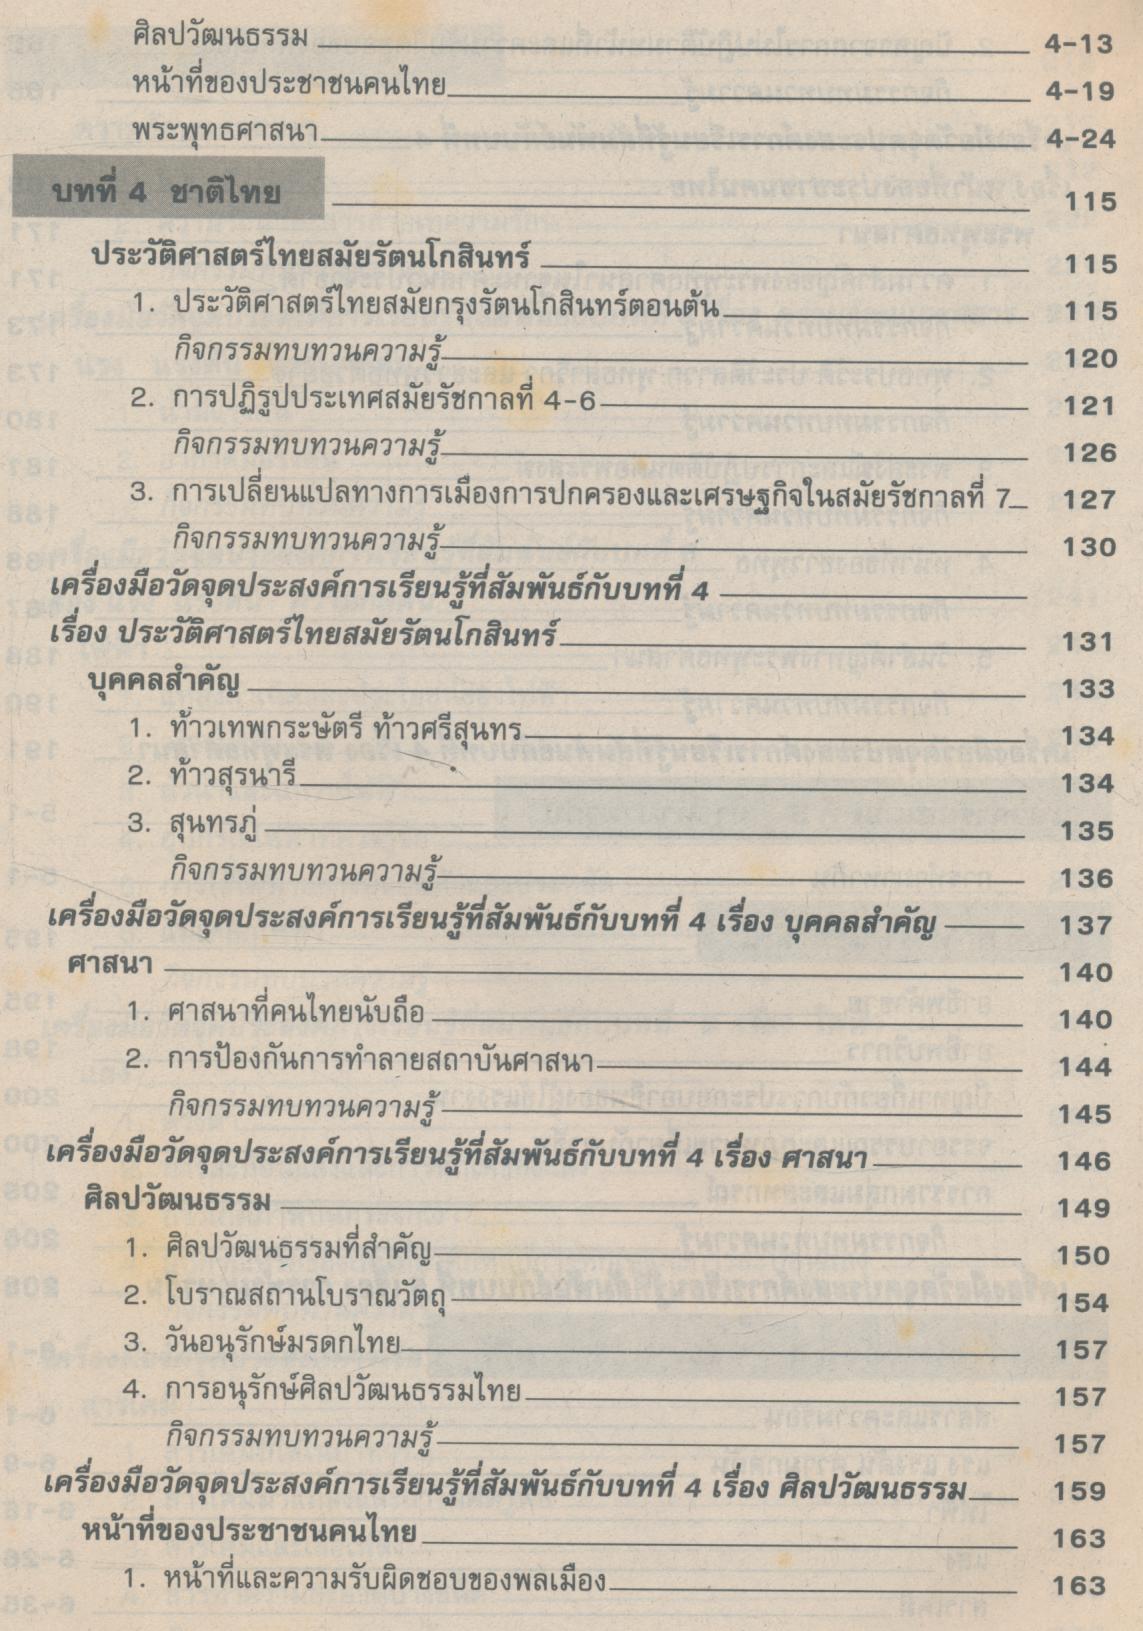 ศิลปวัฒนธรรม 4-13
หน้าที่ของประชาชนคนไทย 4-19
พระพุทธศาสนา 4-24
บทที่ 4 ชาติไทย 115
ประวัติศาสตร์ไทยสมัยรัตนโกสินทร์ 115
1. ประวัติศาสตร์ไทยสมัยกรุงรัตนโกสินทร์ตอนต้น 115
กิจกรรมทบทวนความรู้ 120
2. การปฏิรูปประเทศสมัยรัชกาลที่ 4-6 121
กิจกรรมทบทวนความรู้ 126
3. การเปลี่ยนแปลทางการเมืองการปกครองและเศรษฐกิจในสมัยรัชกาลที่ 7 127
กิจกรรมทบทวนความรู้ 130
เครื่องมือวัดจุดประสงค์การเรียนรู้ที่สัมพันธ์กับบทที่ 4
เรื่อง ประวัติศาสตร์ไทยสมัยรัตนโกสินทร์ 131
บุคคลสำคัญ 133
1. ท้าวเทพกระษัตรี ท้าวศรีสุนทร 134
2. ท้าวสุรนารี 134
3. สุนทรภู่ 135
กิจกรรมทบทวนความรู้ 136
เครื่องมือวัดจุดประสงค์การเรียนรู้ที่สัมพันธ์กับบทที่ 4 เรื่อง บุคคลสำคัญ 137
ศาสนา 140
1. ศาสนาที่คนไทยนับถือ 140
2. การป้องกันการทำลายสถาบันศาสนา 144
กิจกรรมทบทวนความรู้ 145
เครื่องมือวัดจุดประสงค์การเรียนรู้ที่สัมพันธ์กับบทที่ 4 เรื่อง ศาสนา 146
ศิลปวัฒนธรรม 149
1. ศิลปวัฒนธรรมที่สำคัญ 150
2. โบราณสถานโบราณวัตถุ 154
3. วันอนุรักษ์มรดกไทย 157
4. การอนุรักษ์ศิลปวัฒนธรรมไทย 157
กิจกรรมทบทวนความรู้ 157
เครื่องมือวัดจุดประสงค์การเรียนรู้ที่สัมพันธ์กับบทที่ 4 เรื่อง ศิลปวัฒนธรรม 159
หน้าที่ของประชาชนคนไทย 163
1. หน้าที่และความรับผิดชอบของพลเมือง 163